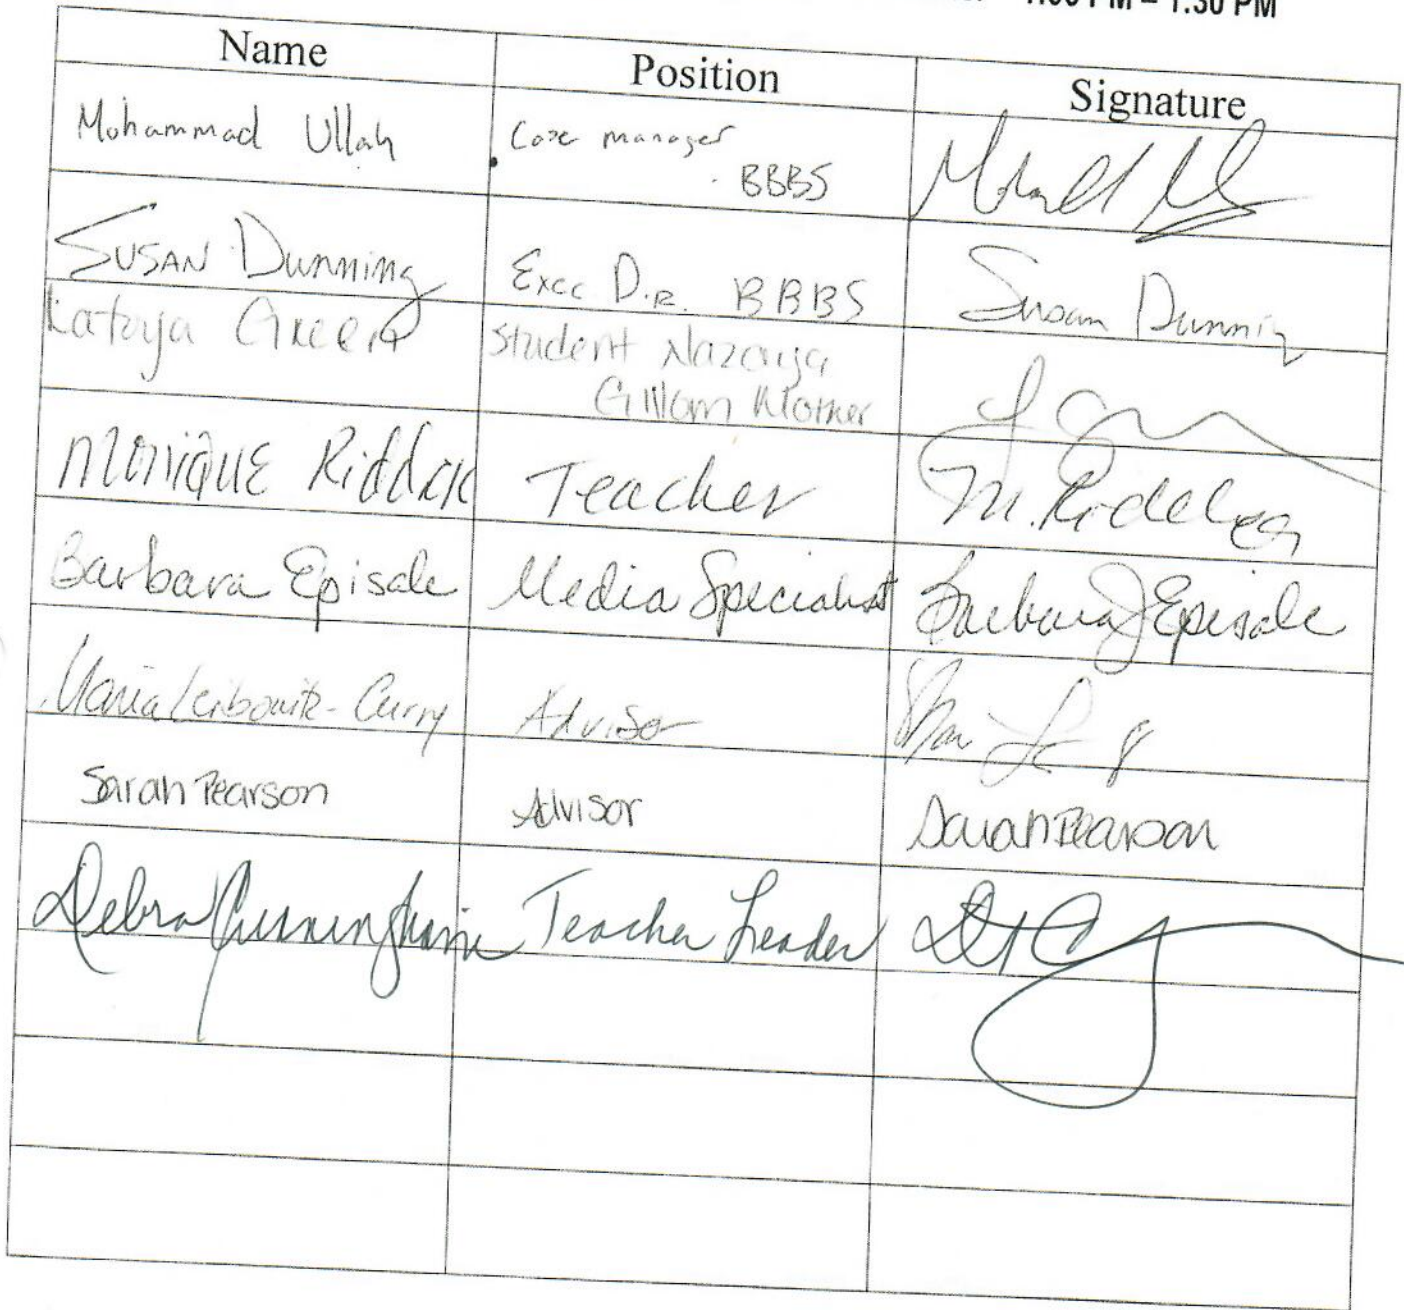 1:30 PM
Name Position Signature
Mohammad Ullah Case manager
BBBS
Susan Dunning Exec Dir. BBBS Susan Dunning
Latoya Green Student Nazaiya
Gillom Mother
Monique Riddick Teacher M. Riddick
Barbara Episale Media Specialist Barbara J Episale
Maria Leibowitz-Curry Advisor
Sarah Pearson Advisor Sarah Pearson
Debra Cunningham Teacher Leader